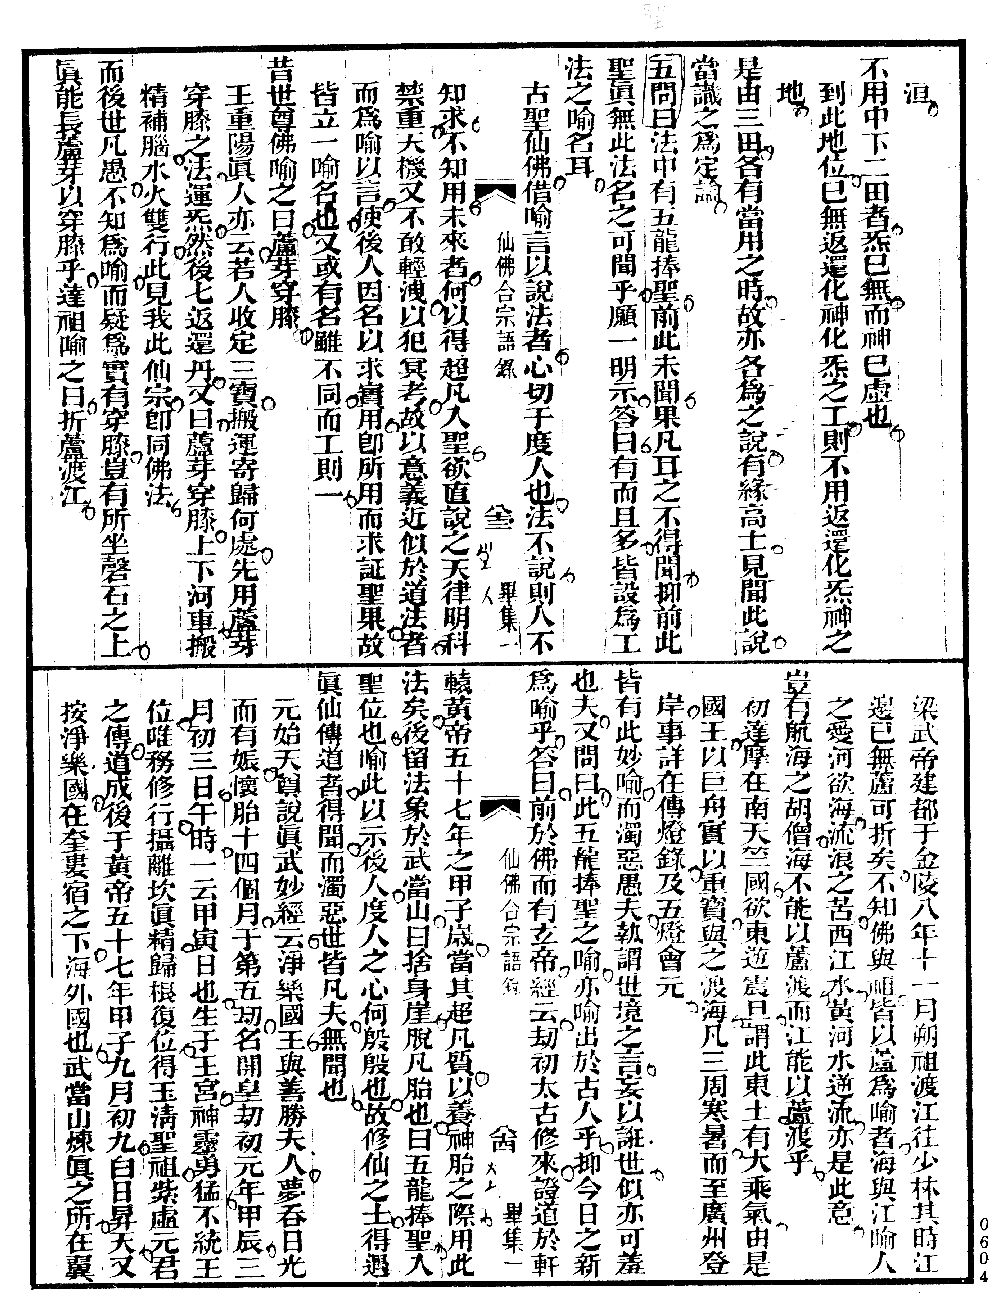 洹
不用中下二田者炁已無而神已虛也
到此地位已無返還化神化炁之工則不用返還化炁神之
地
是由三田各有當用之時故亦各爲之說有緣高士見聞此說
當識之爲定論
五問曰法中有五龍捧聖前此未聞果凡耳之不得聞抑前此
聖眞無此法名之可聞乎願一明示答曰有而且多皆設爲工
法之喻名耳
古聖仙佛借喻言以說法者心切于度人也法不說則人不
仙佛合宗語錄
畢集一
知求不知用未來者何以得超凡入聖欲直說之天律明科
禁重大機又不敢輕洩以犯冥考故以意義近似於道法者
而爲喻以言使後人因名以求實用卽所用而求証聖果故
皆立一喻名也又或有名雖不同而工則一
昔世尊佛喻之曰蘆芽穿膝
王重陽眞人亦云若人收定三寶搬運寄歸何處先用蘆芽
穿膝之法運炁然後七返還丹又曰蘆芽穿膝上下河車搬
精補腦水火雙行此見我此仙宗卽同佛法
而後世凡愚不知爲喻而疑爲實有穿膝豈有所坐磐石之上
眞能長蘆芽以穿膝乎達祖喻之曰折蘆渡江
梁武帝建都于金陵八年十一月朔祖渡江往少林其時江
邊已無蘆可折矣不知佛與祖皆以蘆爲喻者海與江喻人
之愛河欲海流浪之苦西江水黃河水逆流亦是此意
豈有航海之胡僧海不能以蘆渡而江能以蘆渡乎
初達摩在南天竺國欲東遊震旦謂此東土有大乘氣由是
國王以巨舟實以重寶與之渡海凡三周寒暑而至廣州登
岸事詳在傳燈錄及五燈會元
皆有此妙喻而濁惡愚夫執謂世境之言妄以誑世似亦可羞
也夫又問曰此五龍捧聖之喻亦喻出於古人乎抑今日之新
爲喻乎答曰前於佛而有玄帝經云劫初太古修來證道於軒
仙佛合宗語錄
畢集一
轅黃帝五十七年之甲子歲當其超凡質以養神胎之際用此
法矣後留法象於武當山曰捨身崖脫凡胎也曰五龍捧聖入
聖位也喻此以示後人度人之心何殷殷也故修仙之士得遇
眞仙傳道者得聞而濁惡世皆凡夫無聞也
元始天尊說眞武妙經云淨樂國王與善勝夫人夢吞日光
而有娠懷胎十四個月于第五劫名開皇劫初元年甲辰三
月初三日午時一云甲寅日也生于王宮神靈勇猛不統王
位唯務修行攝離坎眞精歸根復位得玉淸聖祖紫虛元君
之傳道成後于黃帝五十七年甲子九月初九白日昇天又
按淨樂國在奎婁宿之下海外國也武當山煉眞之所在翼
0604